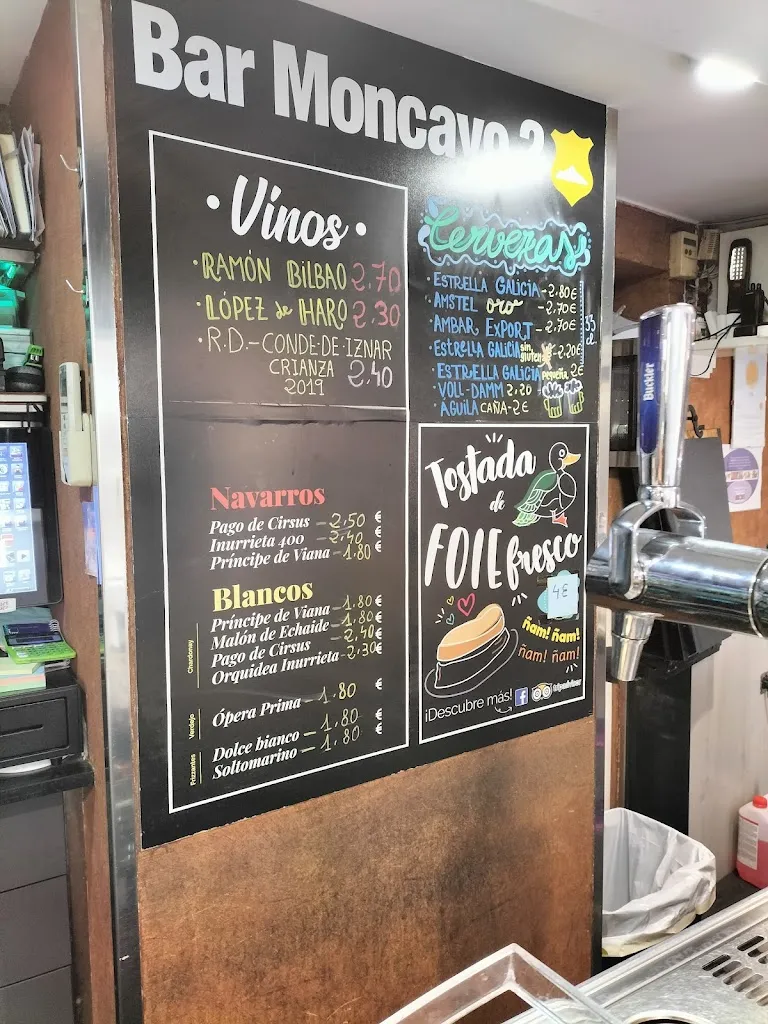 Bar Moncayo 2
• Vinos •
• RAMÓN BILBAO 2,70
• LÓPEZ de HARO 2,30
• R.D.- CONDE-DE-IZNAR
CRIANZA
2019 2,40
Navarros
Pago de Cirsus - 2,50 €
Inurrieta 400 - 2,40 €
Príncipe de Viana - 1.80 €
Blancos
Chardonnay
Príncipe de Viana - 1.80 €
Malón de Echaide - 1.80 €
Pago de Cirsus - 2,40 €
Orquidea Inurrieta - 2,30 €
Verdejo
Ópera Prima - 1.80 €
Frizzantes
Dolce bianco - 1.80 €
Soltomarino - 1.80 €
Cervezas
• ESTRELLA GALICIA - 2,80€
• AMSTEL ORO - 2,70€
AMBAR EXPORT - 2,70€
• ESTRELLA GALICIA sin gluten - 2,20€
• ESTRELLA GALICIA pequeña 2€
• VOLL-DAMM 2,20
• ÁGUILA CAÑA - 2€
Tostada
de
FOIE fresco
4€
ñam! ñam!
ñam! ñam!
¡Descubre más! f tripadvisor
Buckler